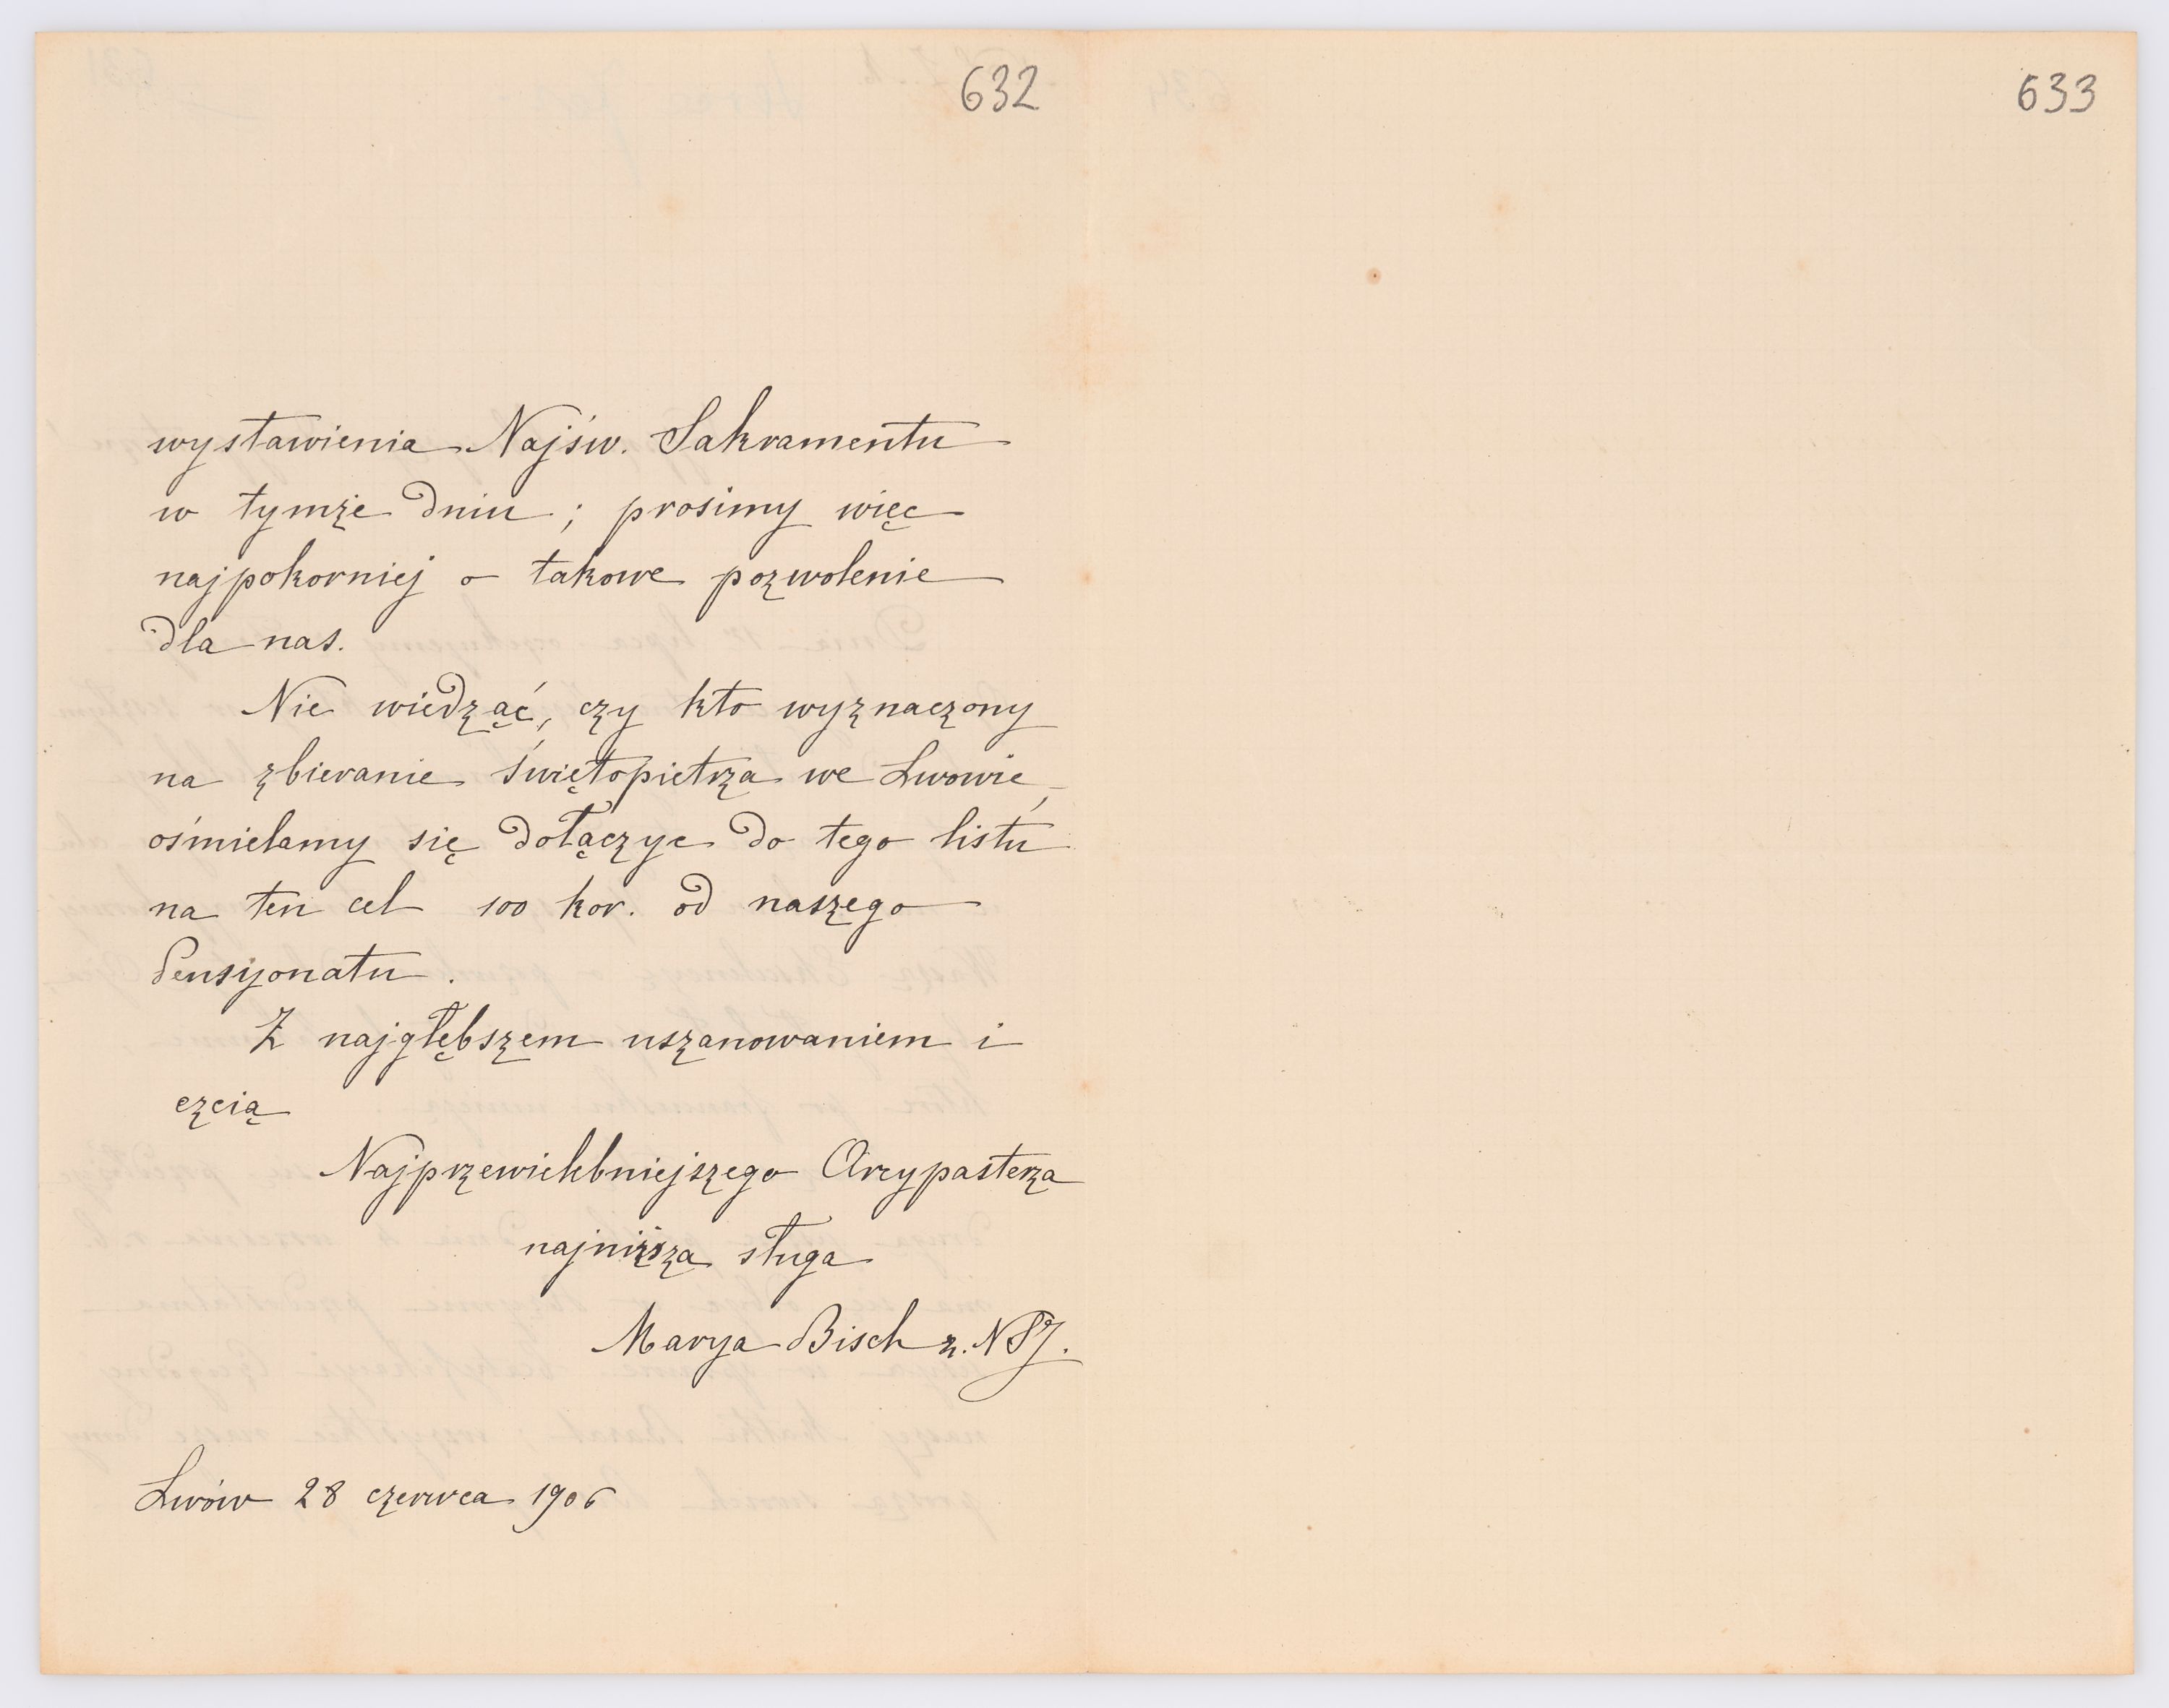 632
633
wystawienia Najśw. Sakramentu
w tymże dniu ; prosimy więc
najpokorniej o takowe pozwolenie
dla nas.
Nie wiedząć, czy kto wyznaczony
na zbieranie świętopietrza we Lwowie,
ośmielamy się dołączyc do tego listu
na ten cel 100 kor. od naszego
Pensyonatu .
Z najgłębszem uszanowaniem i
czcią
Najprzewielebniejszego Arcypasterza
najniższa sługa
Marya Bisch z. NSJ.
Lwów 28 czerwca 1906